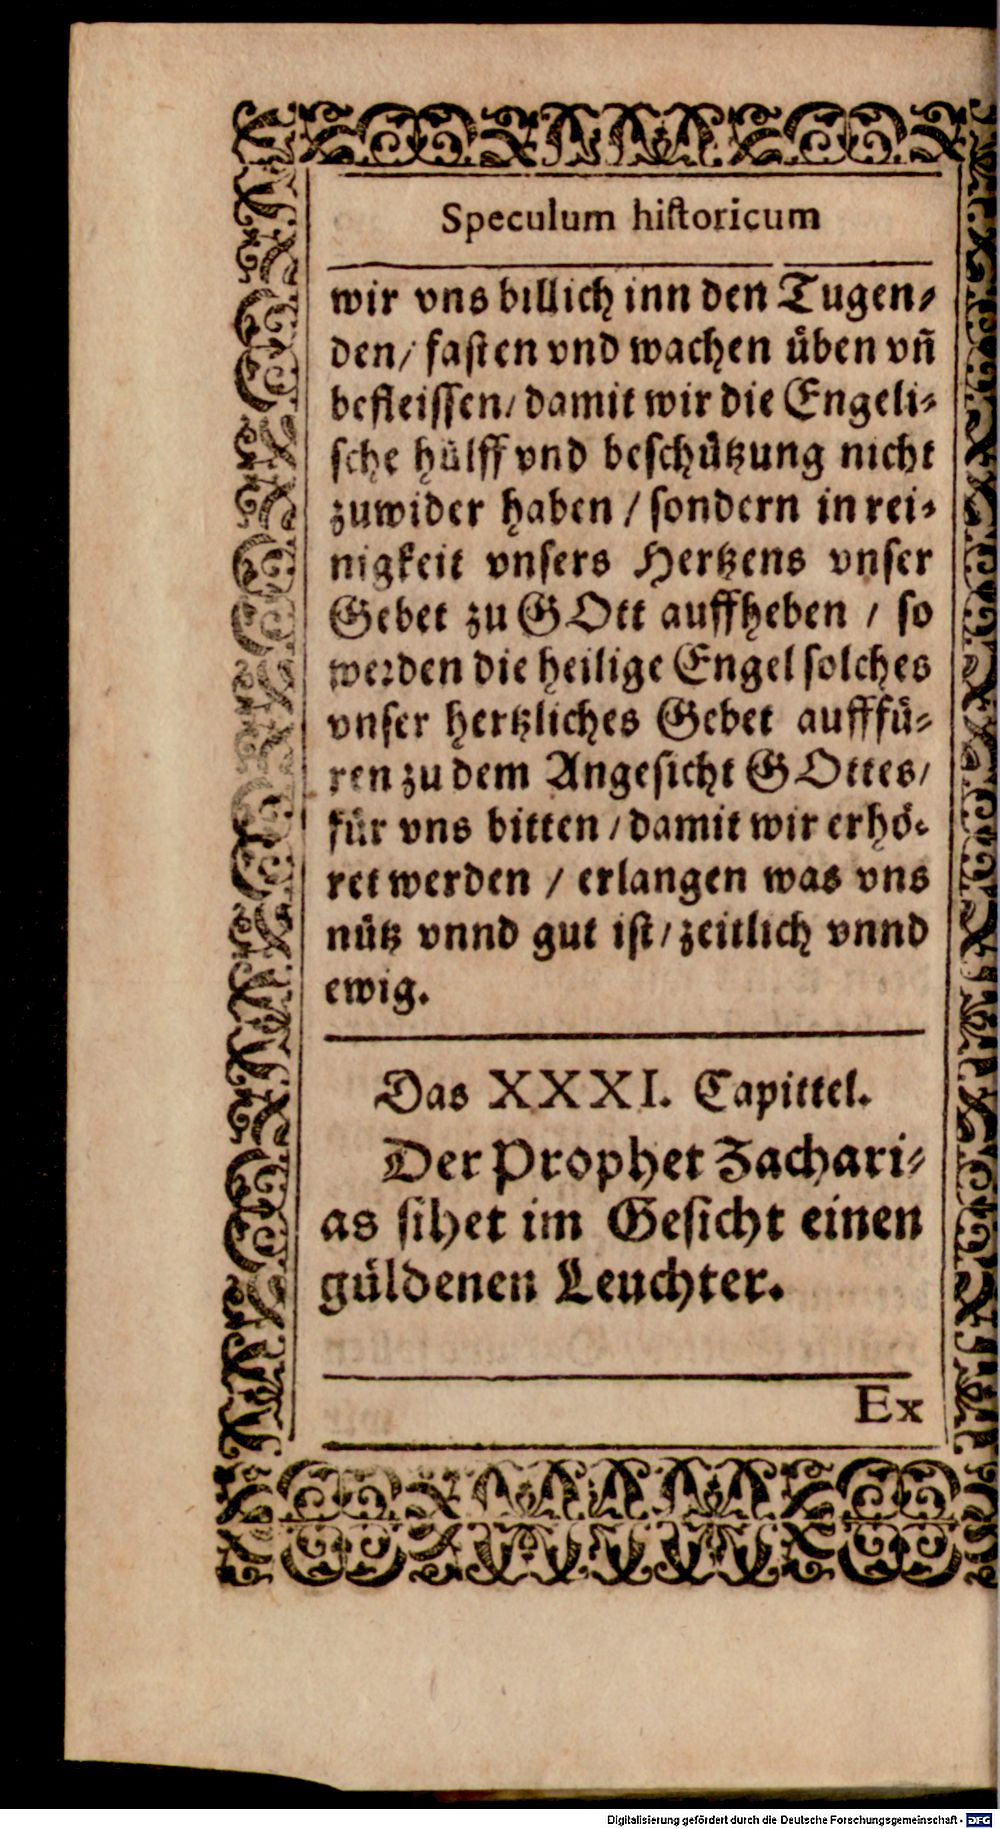 Speculum historicum
wir vns billich inn den Tugen⸗
den/ fasten vnd wachen üben vñ
befleissen/ damit wir die Engeli⸗
sche hülff vnd beschützung nicht
zuwider haben / sondern in rei⸗
nigkeit vnsers Hertzens vnser
Gebet zu GOtt auffheben / so
werden die heilige Engel solches
vnser hertzliches Gebet aufffü⸗
ren zu dem Angesicht GOttes/
für vns bitten / damit wir erhö⸗
ret werden / erlangen was vns
nütz vnnd gut ist/ zeitlich vnnd
ewig.
Das XXXI. Capittel.
Der Prophet Zachari⸗
as sihet im Gesicht einen
güldenen Leuchter.
Ex
Digitalisierung gefördert durch die Deutsche Forschungsgemeinschaft - DFG